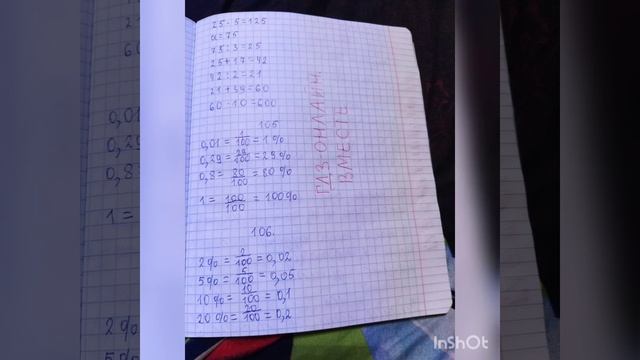 25 · 5 = 125
a = 75
75 : 3 = 25
25 + 17 = 42
42 : 2 = 21
21 + 39 = 60
60 · 10 = 600
105
0,01 = 1/100 = 1%
0,29 = 29/100 = 29%
0,8 = 80/100 = 80%
1 = 100/100 = 100%
106.
2% = 2/100 = 0,02
5% = 5/100 = 0,05
10% = 10/100 = 0,1
20% = 20/100 = 0,2
ГДЗ-ОНЛАЙН.
ВМЕСТЕ
InShOt